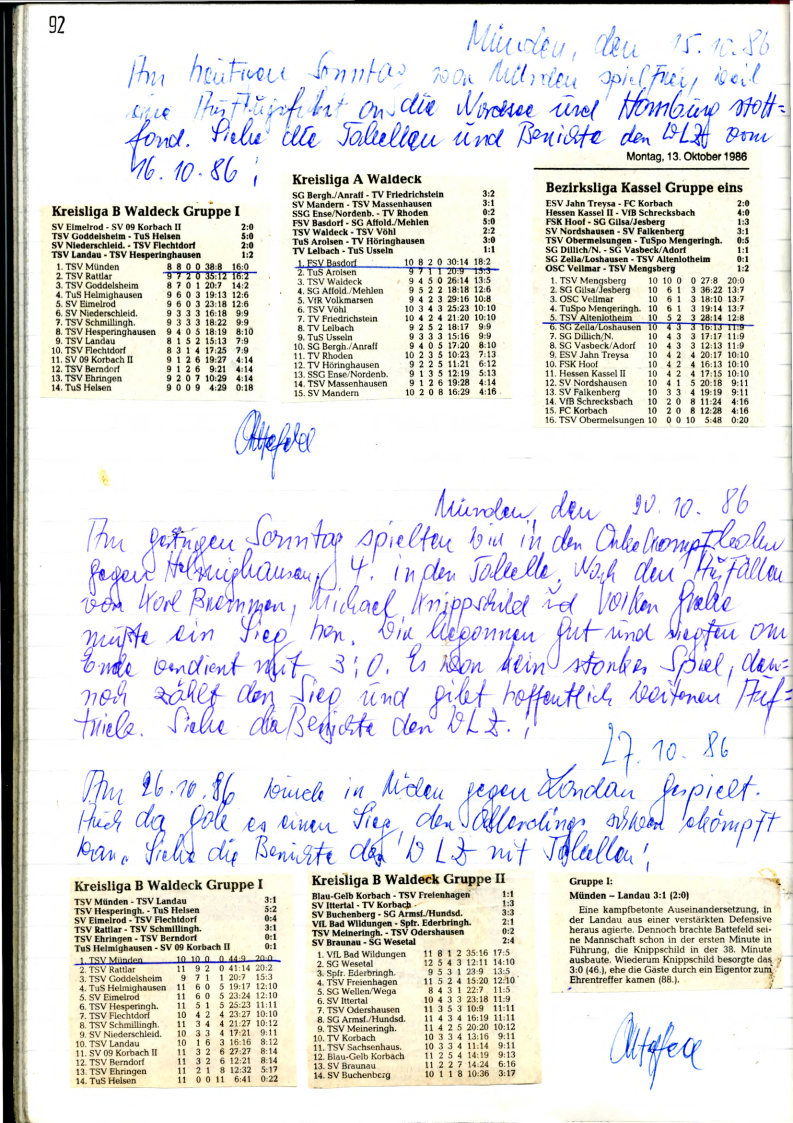 92
Münden, den 15.10.86
Am heutigen Sonntag war Münden spielfrei, weil
eine Ausflugsfahrt an die Nordsee und Hamburg statt=
fand. Siehe die Tabellen und Berichte der WLZ vom
16.10.86!
Montag, 13. Oktober 1986
Kreisliga B Waldeck Gruppe I
SV Eimelrod - SV 09 Korbach II 2:0
TSV Goddelsheim - TuS Helsen 5:0
SV Niederschleid. - TSV Flechtdorf 2:0
TSV Landau - TSV Hesperinghausen 1:2
1. TSV Münden 8 8 0 0 38:8 16:0
2. TSV Rattlar 9 7 2 0 35:12 16:2
3. TSV Goddelsheim 8 7 0 1 20:7 14:2
4. TuS Helmighausen 9 6 0 3 19:13 12:6
5. SV Eimelrod 9 6 0 3 23:18 12:6
6. SV Niederschleid. 9 3 3 3 16:18 9:9
7. TSV Schmillingh. 9 3 3 3 18:22 9:9
8. TSV Hesperinghausen 9 4 0 5 18:19 8:10
9. TSV Landau 8 1 5 2 15:13 7:9
10. TSV Flechtdorf 8 3 1 4 17:25 7:9
11. SV 09 Korbach II 9 1 2 6 19:27 4:14
12. TSV Berndorf 9 1 2 6 9:21 4:14
13. TSV Ehringen 9 2 0 7 10:29 4:14
14. TuS Helsen 9 0 0 9 4:29 0:18
Kreisliga A Waldeck
SG Bergh./Anraff - TV Friedrichstein 3:2
SV Mandern - TSV Massenhausen 3:1
SSG Ense/Nordenb. - TV Rhoden 0:2
FSV Basdorf - SG Affold./Mehlen 5:0
TSV Waldeck - TSV Vöhl 2:2
TuS Arolsen - TV Höringhausen 3:0
TV Lelbach - TuS Usseln 1:1
1. FSV Basdorf 10 8 2 0 30:14 18:2
2. TuS Arolsen 9 7 1 1 20:9 15:3
3. TSV Waldeck 9 4 5 0 26:14 13:5
4. SG Affold./Mehlen 9 5 2 2 18:18 12:6
5. VfR Volkmarsen 9 4 2 3 29:16 10:8
6. TSV Vöhl 10 3 4 3 25:23 10:10
7. TV Friedrichstein 10 4 2 4 21:20 10:10
8. TV Lelbach 9 2 5 2 18:17 9:9
9. TuS Usseln 9 3 3 3 15:16 9:9
10. SG Bergh./Anraff 9 4 0 5 17:20 8:10
11. TV Rhoden 10 2 3 5 10:23 7:13
12. TV Höringhausen 9 2 2 5 11:21 6:12
13. SSG Ense/Nordenb. 9 1 3 5 12:19 5:13
14. TSV Massenhausen 9 1 2 6 19:28 4:14
15. SV Mandern 10 2 0 8 16:29 4:16
Bezirksliga Kassel Gruppe eins
ESV Jahn Treysa - FC Korbach 2:0
Hessen Kassel II - VfB Schrecksbach 4:0
FSK Hoof - SG Gilsa/Jesberg 1:3
SV Nordshausen - SV Falkenberg 3:1
TSV Obermelsungen - TuSpo Mengeringh. 0:5
SG Dillich/N. - SG Vasbeck/Adorf 1:1
SG Zella/Loshausen - TSV Altenlotheim 0:1
OSC Vellmar - TSV Mengsberg 1:2
1. TSV Mengsberg 10 10 0 0 27:8 20:0
2. SG Gilsa/Jesberg 10 6 1 3 36:22 13:7
3. OSC Vellmar 10 6 1 3 18:10 13:7
4. TuSpo Mengeringh. 10 6 1 3 19:14 13:7
5. TSV Altenlotheim 10 5 2 3 28:14 12:8
6. SG Zella/Loshausen 10 4 3 3 16:13 11:9
7. SG Dillich/N. 10 4 3 3 17:17 11:9
8. SG Vasbeck/Adorf 10 4 3 3 12:13 11:9
9. ESV Jahn Treysa 10 4 2 4 20:17 10:10
10. FSK Hoof 10 4 2 4 16:13 10:10
11. Hessen Kassel II 10 4 2 4 17:15 10:10
12. SV Nordshausen 10 4 1 5 20:18 9:11
13. SV Falkenberg 10 3 3 4 19:19 9:11
14. VfB Schrecksbach 10 2 0 8 11:24 4:16
15. FC Korbach 10 2 0 8 12:28 4:16
16. TSV Obermelsungen 10 0 0 10 5:48 0:20
Münden, den 20.10.86
Am gestrigen Sonntag spielten wir in der
gegen Helmighausen, 4. in der Tabelle. Nach den Ausfällen
von Karl Brammer, Michael Knippschild und Volker Grebe
mußte ein Sieg her. Wir begannen gut und siegten am
Ende verdient mit 3:0. Es war kein starkes Spiel, den=
noch zählt der Sieg und gibt hoffentlich weiteren Auf=
trieb. Siehe die Berichte der WLZ.!
27.10.86
Am 26.10.86 wurde in Müden gegen Landau gespielt.
Auch da gab es einen Sieg, der allerdings schwer erkämpft
war. Siehe die Berichte der WLZ mit Tabellen!
Kreisliga B Waldeck Gruppe I
TSV Münden - TSV Landau 3:1
TSV Hesperingh. - TuS Helsen 5:2
SV Eimelrod - TSV Flechtdorf 0:4
TSV Rattlar - TSV Schmillingh. 3:1
TSV Ehringen - TSV Berndorf 0:1
TuS Helmighausen - SV 09 Korbach II 0:1
1. TSV Münden 10 10 0 0 44:9 20:0
2. TSV Rattlar 11 9 2 0 41:14 20:2
3. TSV Goddelsheim 9 7 1 1 20:7 15:3
4. TuS Helmighausen 11 6 0 5 19:17 12:10
5. SV Eimelrod 11 6 0 5 23:24 12:10
6. TSV Hesperingh. 11 5 1 5 25:23 11:11
7. TSV Flechtdorf 10 4 2 4 23:27 10:10
8. TSV Schmillingh. 11 3 4 4 21:27 10:12
9. SV Niederschleid. 10 3 3 4 17:21 9:11
10. TSV Landau 10 1 6 3 16:16 8:12
11. SV 09 Korbach II 11 3 2 6 27:27 8:14
12. TSV Berndorf 11 3 2 6 12:21 8:14
13. TSV Ehringen 11 2 1 8 12:32 5:17
14. TuS Helsen 11 0 0 11 6:41 0:22
Kreisliga B Waldeck Gruppe II
Blau-Gelb Korbach - TSV Freienhagen 1:1
SV Ittertal - TV Korbach 1:3
SV Buchenberg - SG Armsf./Hundsd. 3:3
VfL Bad Wildungen - Spfr. Ederbringh. 2:1
TSV Meineringh. - TSV Odershausen 0:2
SV Braunau - SG Wesetal 2:4
1. VfL Bad Wildungen 11 8 1 2 35:16 17:5
2. SG Wesetal 12 5 4 3 12:11 14:10
3. Spfr. Ederbringh. 9 5 3 1 23:9 13:5
4. TSV Freienhagen 11 5 2 4 15:20 12:10
5. SG Wellen/Wega 8 4 3 1 22:7 11:5
6. SV Ittertal 10 4 3 3 23:18 11:9
7. TSV Odershausen 11 3 5 3 10:9 11:11
8. SG Armsf./Hundsd. 11 4 3 4 16:19 11:11
9. TSV Meineringh. 11 4 2 5 20:20 10:12
10. TV Korbach 10 3 3 4 13:16 9:11
11. TSV Sachsenhaus. 10 3 3 4 11:14 9:11
12. Blau-Gelb Korbach 11 2 5 4 14:19 9:13
13. SV Braunau 11 2 2 7 14:24 6:16
14. SV Buchenberg 10 1 1 8 10:36 3:17
Gruppe I:
Münden – Landau 3:1 (2:0)
Eine kampfbetonte Auseinandersetzung, in
der Landau aus einer verstärkten Defensive
heraus agierte. Dennoch brachte Battefeld sei-
ne Mannschaft schon in der ersten Minute in
Führung, die Knippschild in der 38. Minute
ausbaute. Wiederum Knippschild besorgte das
3:0 (46.), ehe die Gäste durch ein Eigentor zum
Ehrentreffer kamen (88.).